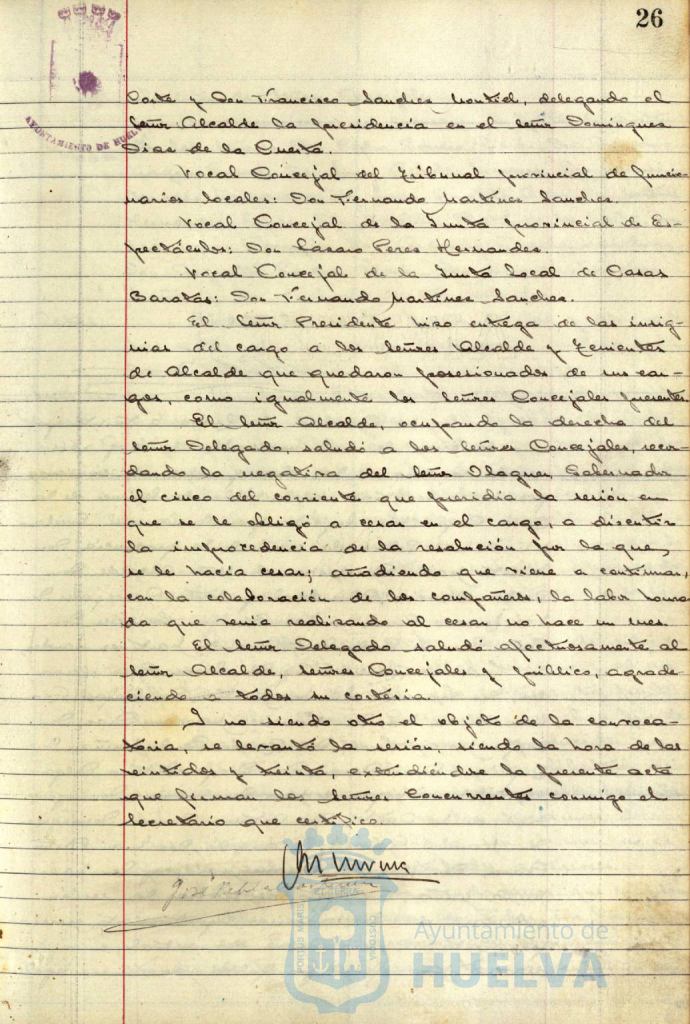 26
AYUNTAMIENTO DE HUELVA
Corte y Don Francisco Sanchez Montiel, delegando el
Señor Alcalde la presidencia en el Señor Dominguez
Diaz de la Cuesta.
Vocal Concejal del Tribunal provincial de funcio-
narios locales: Don Fernando Martinez Sanchez.
Vocal Concejal de la Junta provincial de Es-
pectáculos: Don Lázaro Perez Hernandez.
Vocal Concejal de la Junta Local de Casas
Baratas: Don Fernando Martinez Sanchez.
El Señor Presidente hizo entrega de las insig-
nias del cargo a los Señores Alcalde y Tenientes
de Alcalde que quedaron posesionados de sus car-
gos, como igualmente los Señores Concejales presentes.
El Señor Alcalde, ocupando la derecha del
Señor Delegado, saludó a los Señores Concejales, recor-
dando la negativa del Señor Gobernador
el cinco del corriente que presidia la sesión en
que se le obligó a cesar en el cargo, a discutir
la improcedencia de la resolución por la que,
se le hacia cesar; añadiendo que viene a continuar,
con la colaboración de los compañeros, la labor honra-
da que venia realizando al cesar no hace un mes.
El Señor Delegado saludó afectuosamente al
Señor Alcalde, Señores Concejales y público, agrade-
ciendo a todos su cortesia.
Y no siendo otro el objeto de la convoca-
toria, se levantó la sesión, siendo la hora de las
veintidos y treinta, extendiéndose la presente acta
que firman los Señores Concurrentes conmigo el
Secretario que certifico.
José
PORTUS MARIS
CUSTODIA
Ayuntamiento de
HUELVA